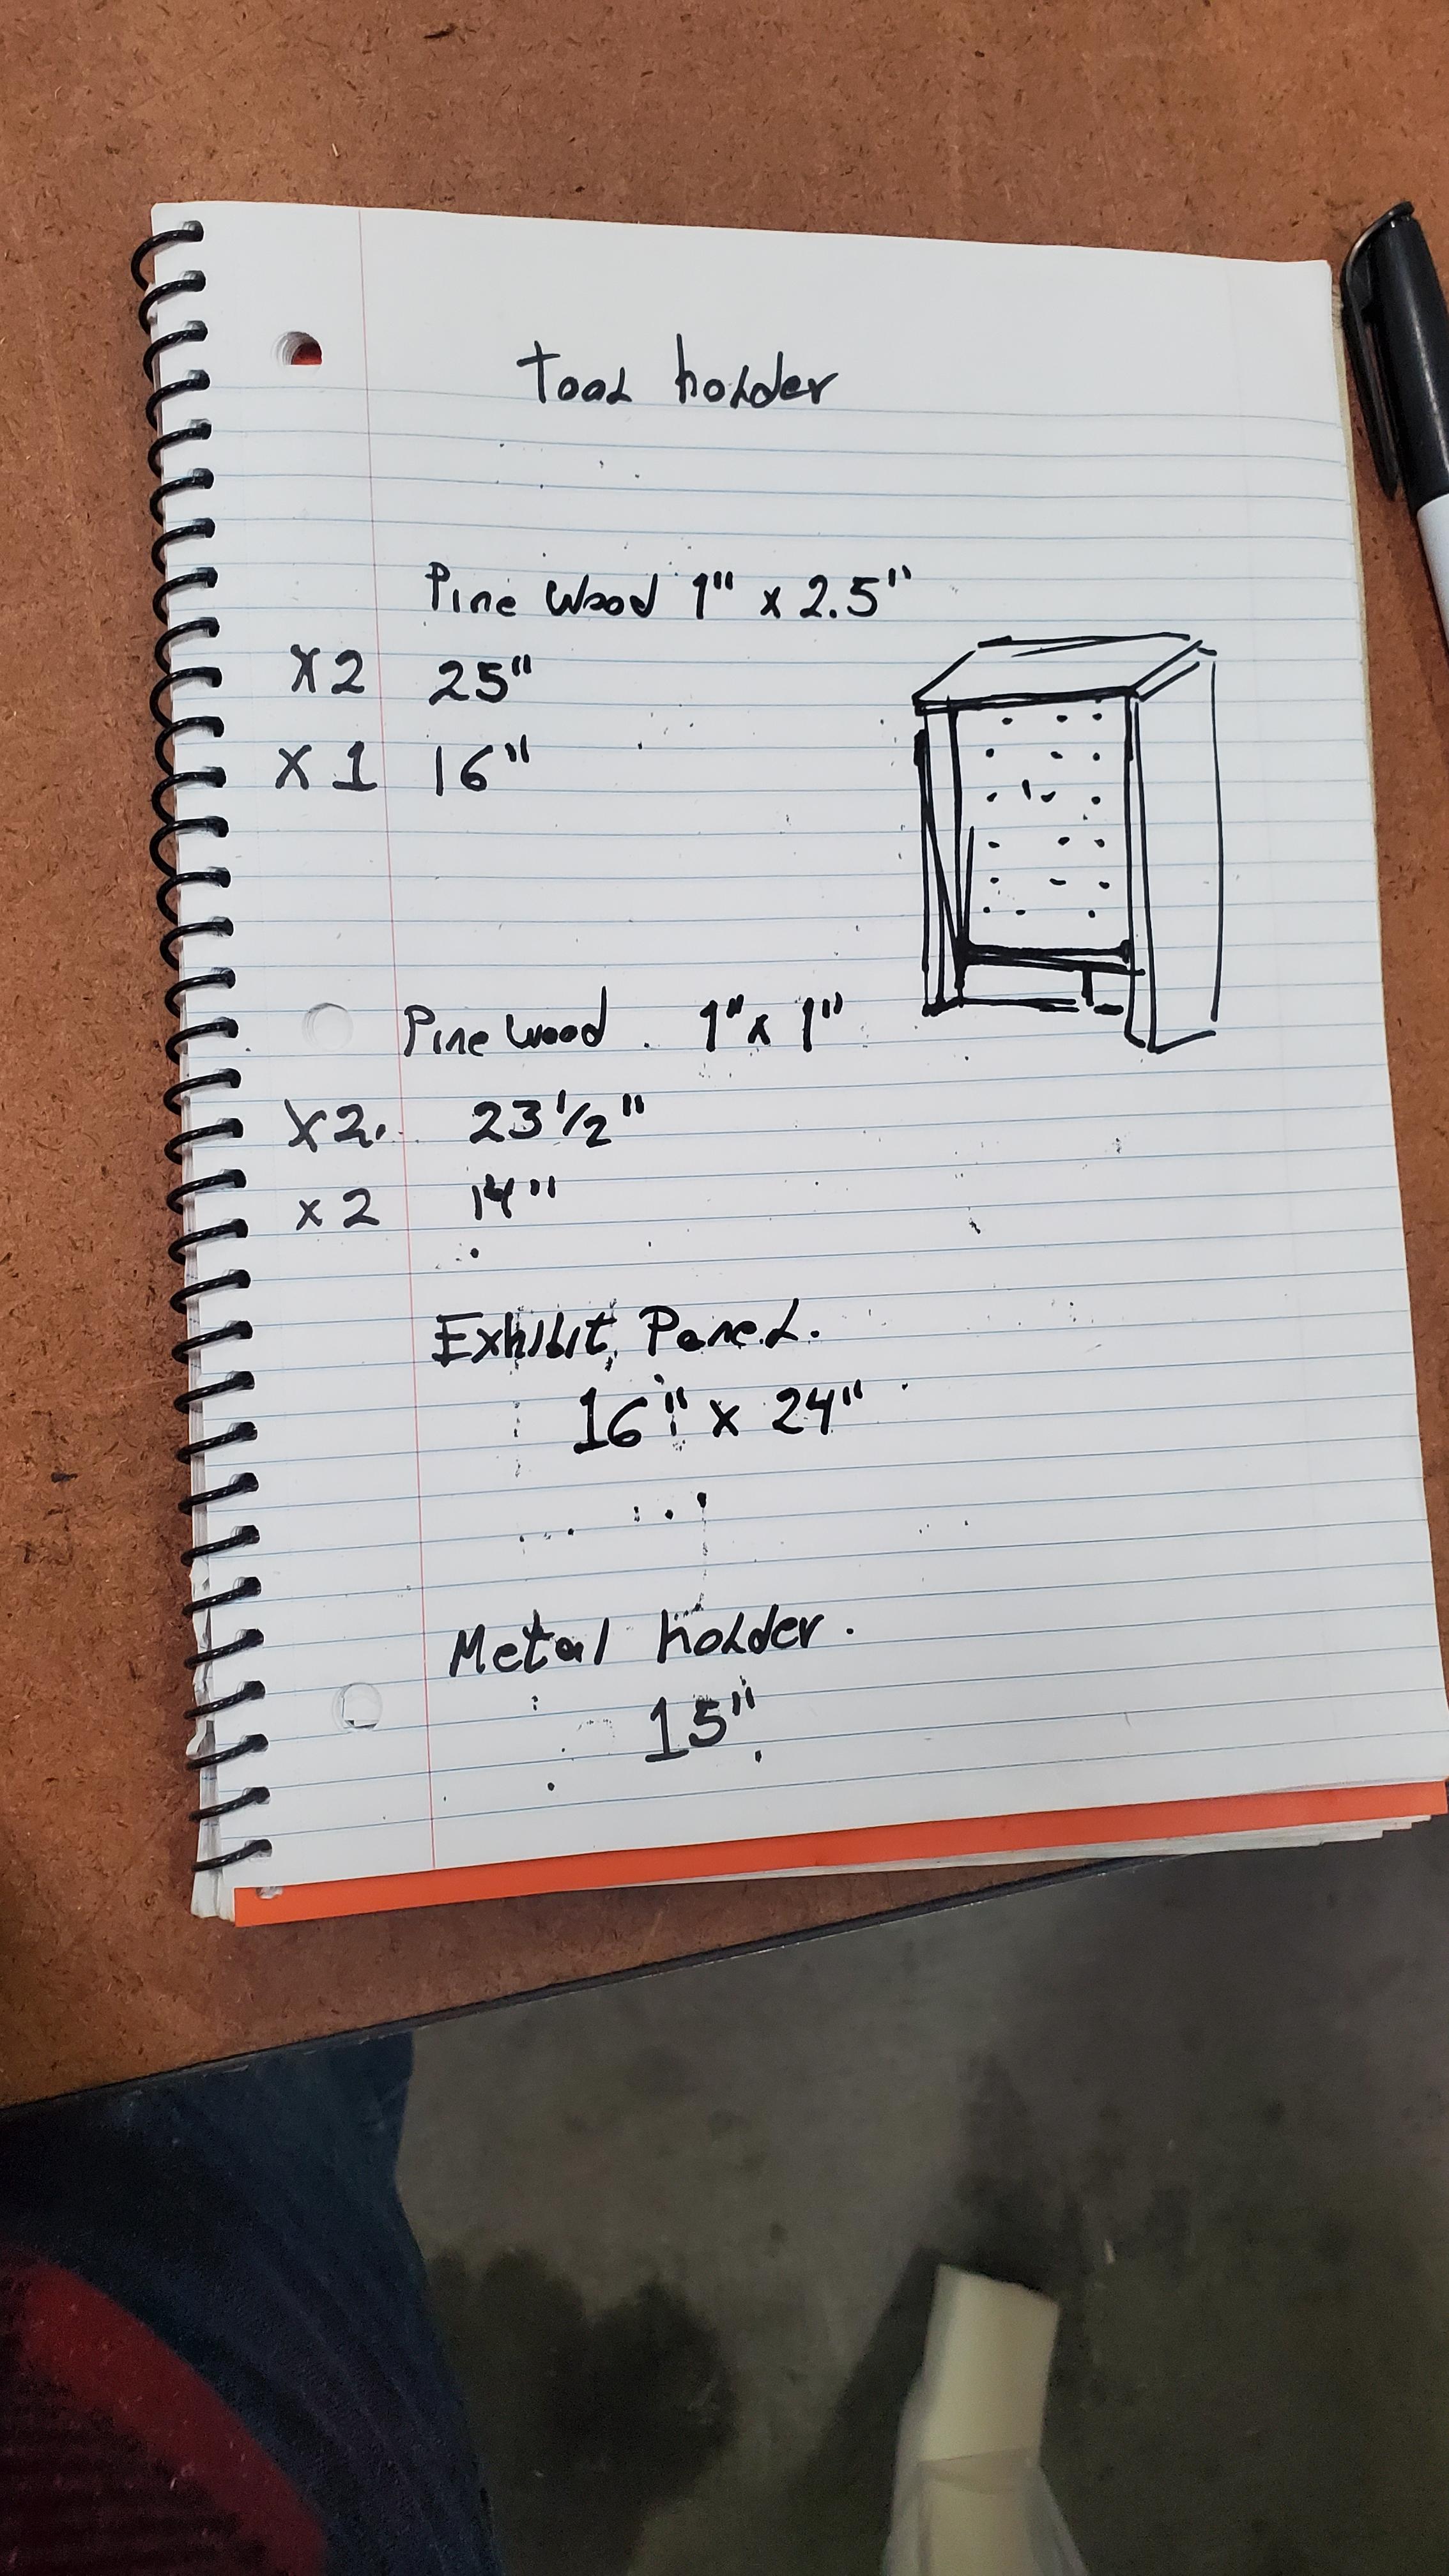 Tool holder
Pine Wood 1" x 2.5"
X2 25"
X1 16"
Pine Wood. 1" x 1"
X2. 23 1/2"
x2 14"
Exhibit Panel.
16" x 24"
Metal holder.
15"